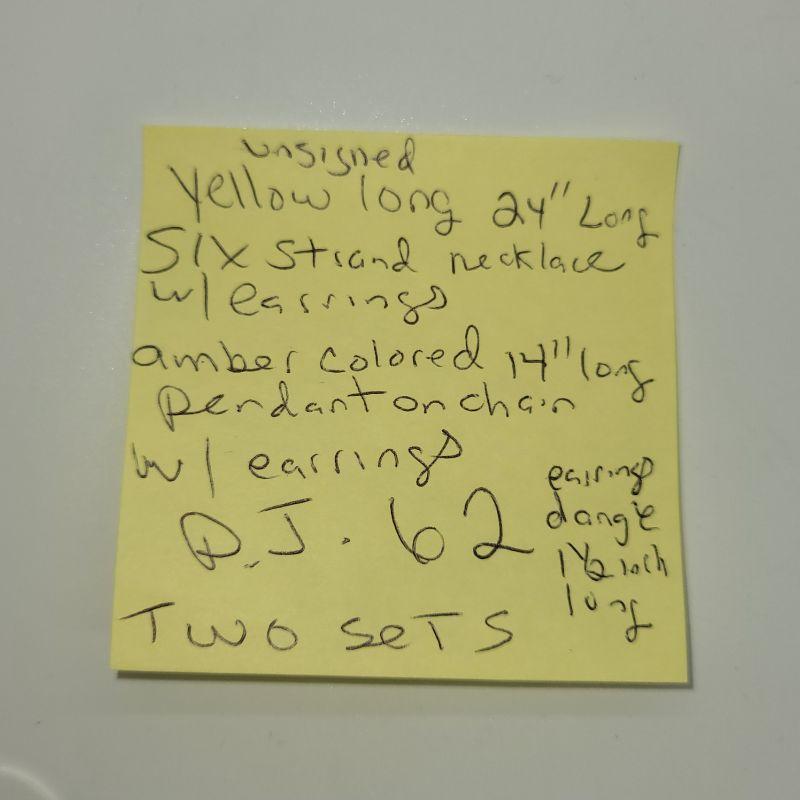 unsigned
Yellow long 24" Long
Six strand necklace
w/ earrings
amber colored 14" long
pendant on chain
w/ earrings
D.J. 62
earrings
dangle
1 1/2 inch
long
Two SeTS